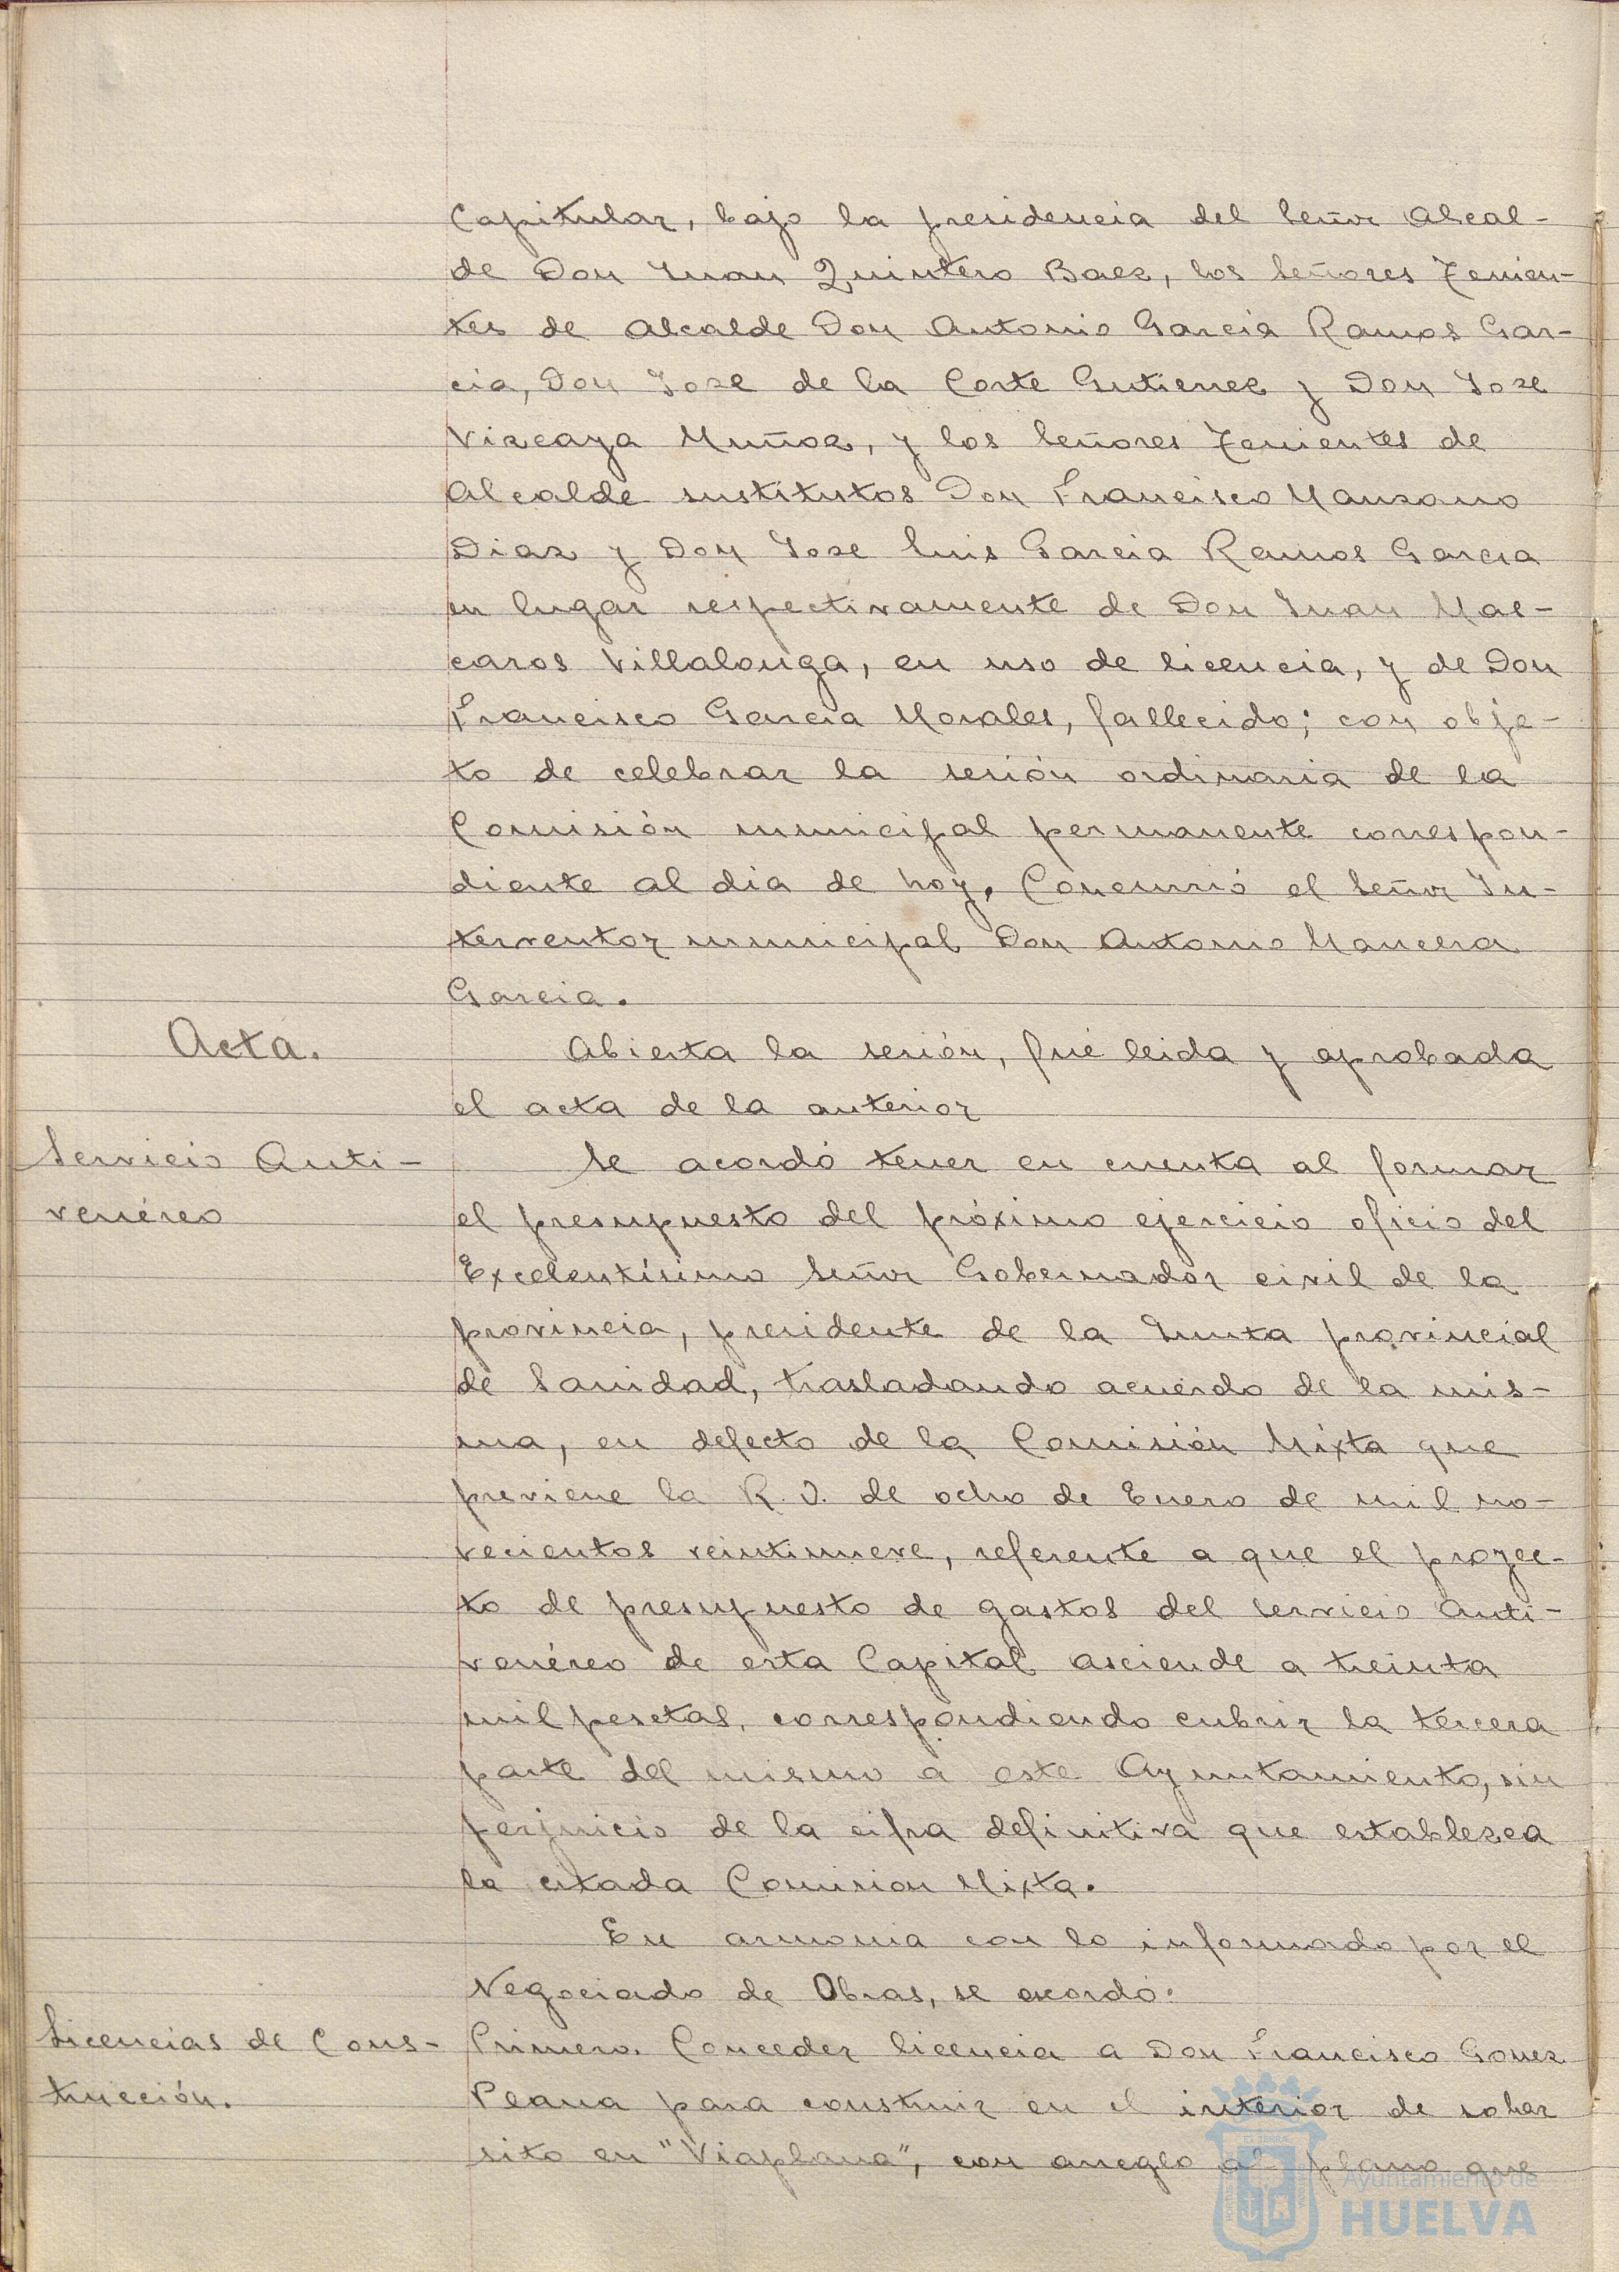 Capitular, bajo la presidencia del Señor Alcal-
de Don Juan Quintero Baez, los Señores Tenien-
tes de Alcalde Don Antonio Garcia Ramos Gar-
cia, Don Jose de la Corte Gutierrez y Don Jose
Vizcaya Muñoz, y los Señores Tenientes de
Alcalde sustitutos Don Francisco Manzano
Diaz y Don Jose Luis Garcia Ramos Garcia
en lugar respectivamente de Don Juan Mas-
caros Villalonga, en uso de licencia, y de Don
Francisco Garcia Morales, fallecido; con obje-
to de celebrar la sesión ordinaria de la
Comisión municipal permanente correspon-
diente al dia de hoy. Concurrió el Señor In-
terventor municipal Don Antonio Mancera
Garcia.
Acta.
Abierta la sesión, fué leida y aprobada
el acta de la anterior
Servicio Anti-
venéreo
Se acordó tener en cuenta al formar
el presupuesto del próximo ejercicio oficio del
Excelentísimo Señor Gobernador civil de la
provincia, presidente de la Junta provincial
de Sanidad, trasladando acuerdo de la mis-
ma, en defecto de la Comisión Mixta que
previene la R. O. de ocho de Enero de mil no-
vecientos veintinueve, referente a que el proyec-
to de presupuesto de gastos del servicio Anti-
venéreo de esta Capital asciende a treinta
mil pesetas, correspondiendo cubrir la tercera
parte del mismo a este Ayuntamiento, sin
perjuicio de la cifra definitiva que establezca
la citada Comision Mixta.
En armonia con lo informado por el
Negociado de Obras, se acordó:
Licencias de Cons-
trucción.
Primero. Conceder licencia a Don Francisco Gomez
Plana para construir en el interior de solar
sito en "Viaplana", con arreglo al plano que
Ayuntamiento de
HUELVA